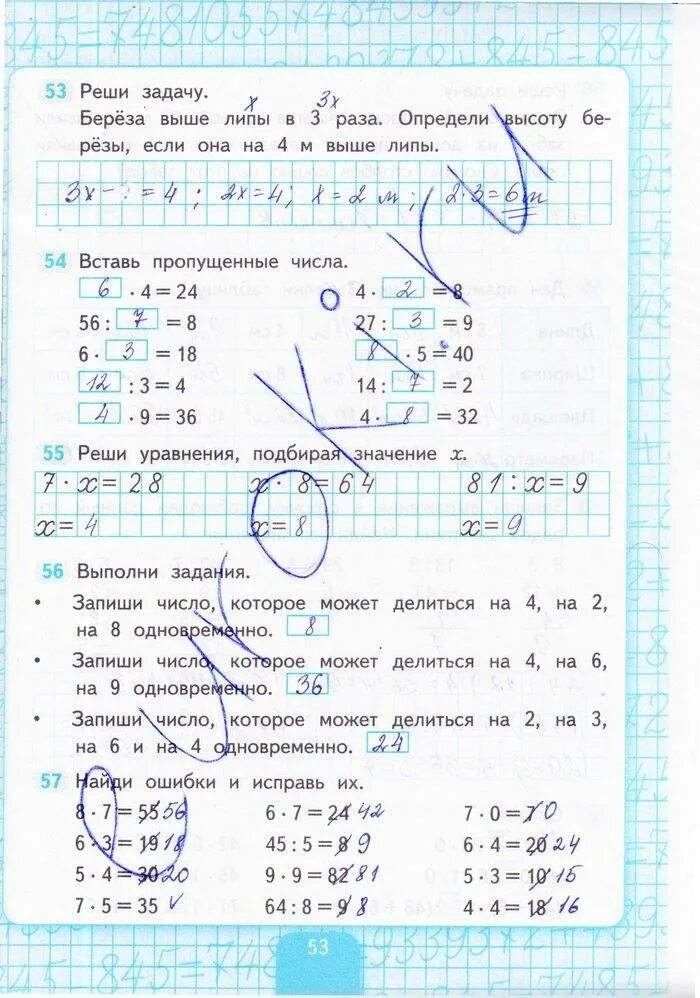 53 Реши задачу.
х 3х
Берёза выше липы в 3 раза. Определи высоту бе-
рёзы, если она на 4 м выше липы.
3х - = 4 ; 2х=4; х=2 м; 2·3=6м
54 Вставь пропущенные числа.
6 · 4 = 24 4 · 2 = 8
56 : 7 = 8 27 : 3 = 9
6 · 3 = 18 8 · 5 = 40
12 : 3 = 4 14 : 7 = 2
4 · 9 = 36 4 · 8 = 32
55 Реши уравнения, подбирая значение x.
7 · x = 28 x · 8 = 64 81 : x = 9
x = 4 x = 8 x = 9
56 Выполни задания.
• Запиши число, которое может делиться на 4, на 2,
на 8 одновременно. 8
• Запиши число, которое может делиться на 4, на 6,
на 9 одновременно. 36
• Запиши число, которое может делиться на 2, на 3,
на 6 и на 4 одновременно. 24
57 Найди ошибки и исправь их.
8 · 7 = 55 56 6 · 7 = 24 42 7 · 0 = 7 0
6 · 3 = 19 18 45 : 5 = 8 9 6 · 4 = 20 24
5 · 4 = 30 20 9 · 9 = 82 81 5 · 3 = 10 15
7 · 5 = 35 ✓ 64 : 8 = 9 8 4 · 4 = 18 16
53